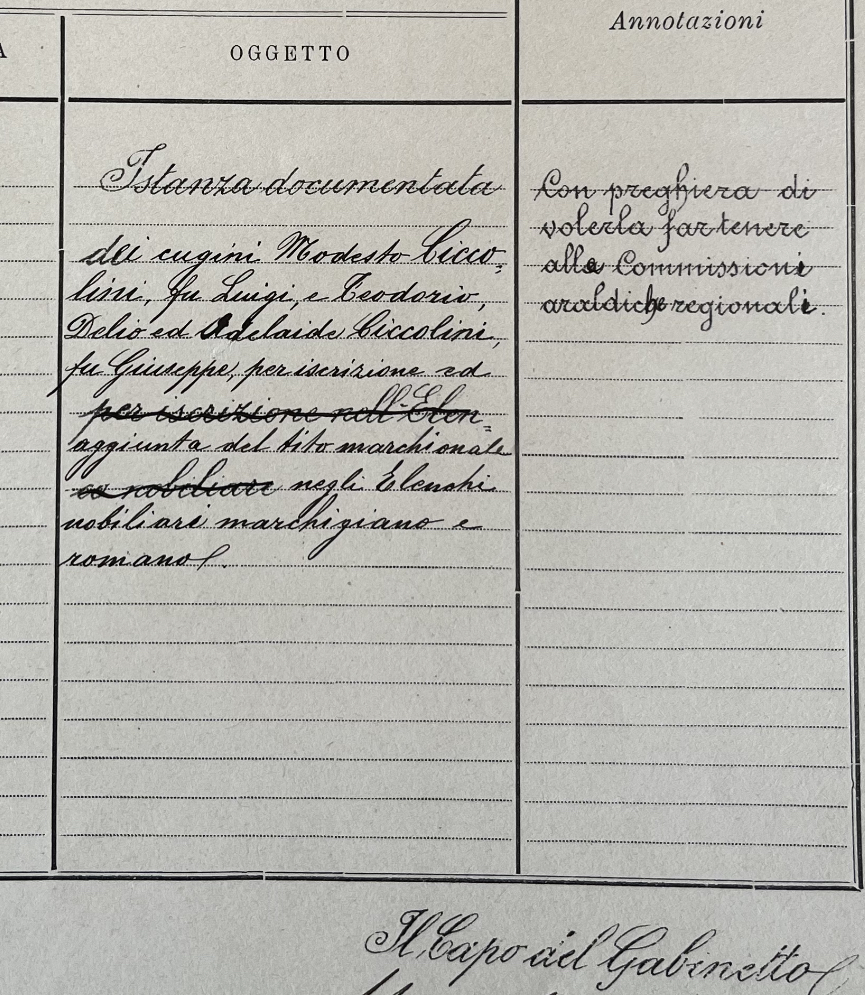 A
OGGETTO
Annotazioni
Istanza documentata
dei cugini Modesto Cicco=
lini, fu Luigi, e Teodorio,
Delio ed Adelaide Ciccolini,
fu Giuseppe, per iscrizione ed
per iscrizione nell'Elen=
aggiunta del tito marchionale
co nobiliare negli Elenchi
nobiliari marchigiano e
romano.
Con preghiera di
volerla far tenere
alle Commissioni
araldiche regionali.
Il Capo del Gabinetto